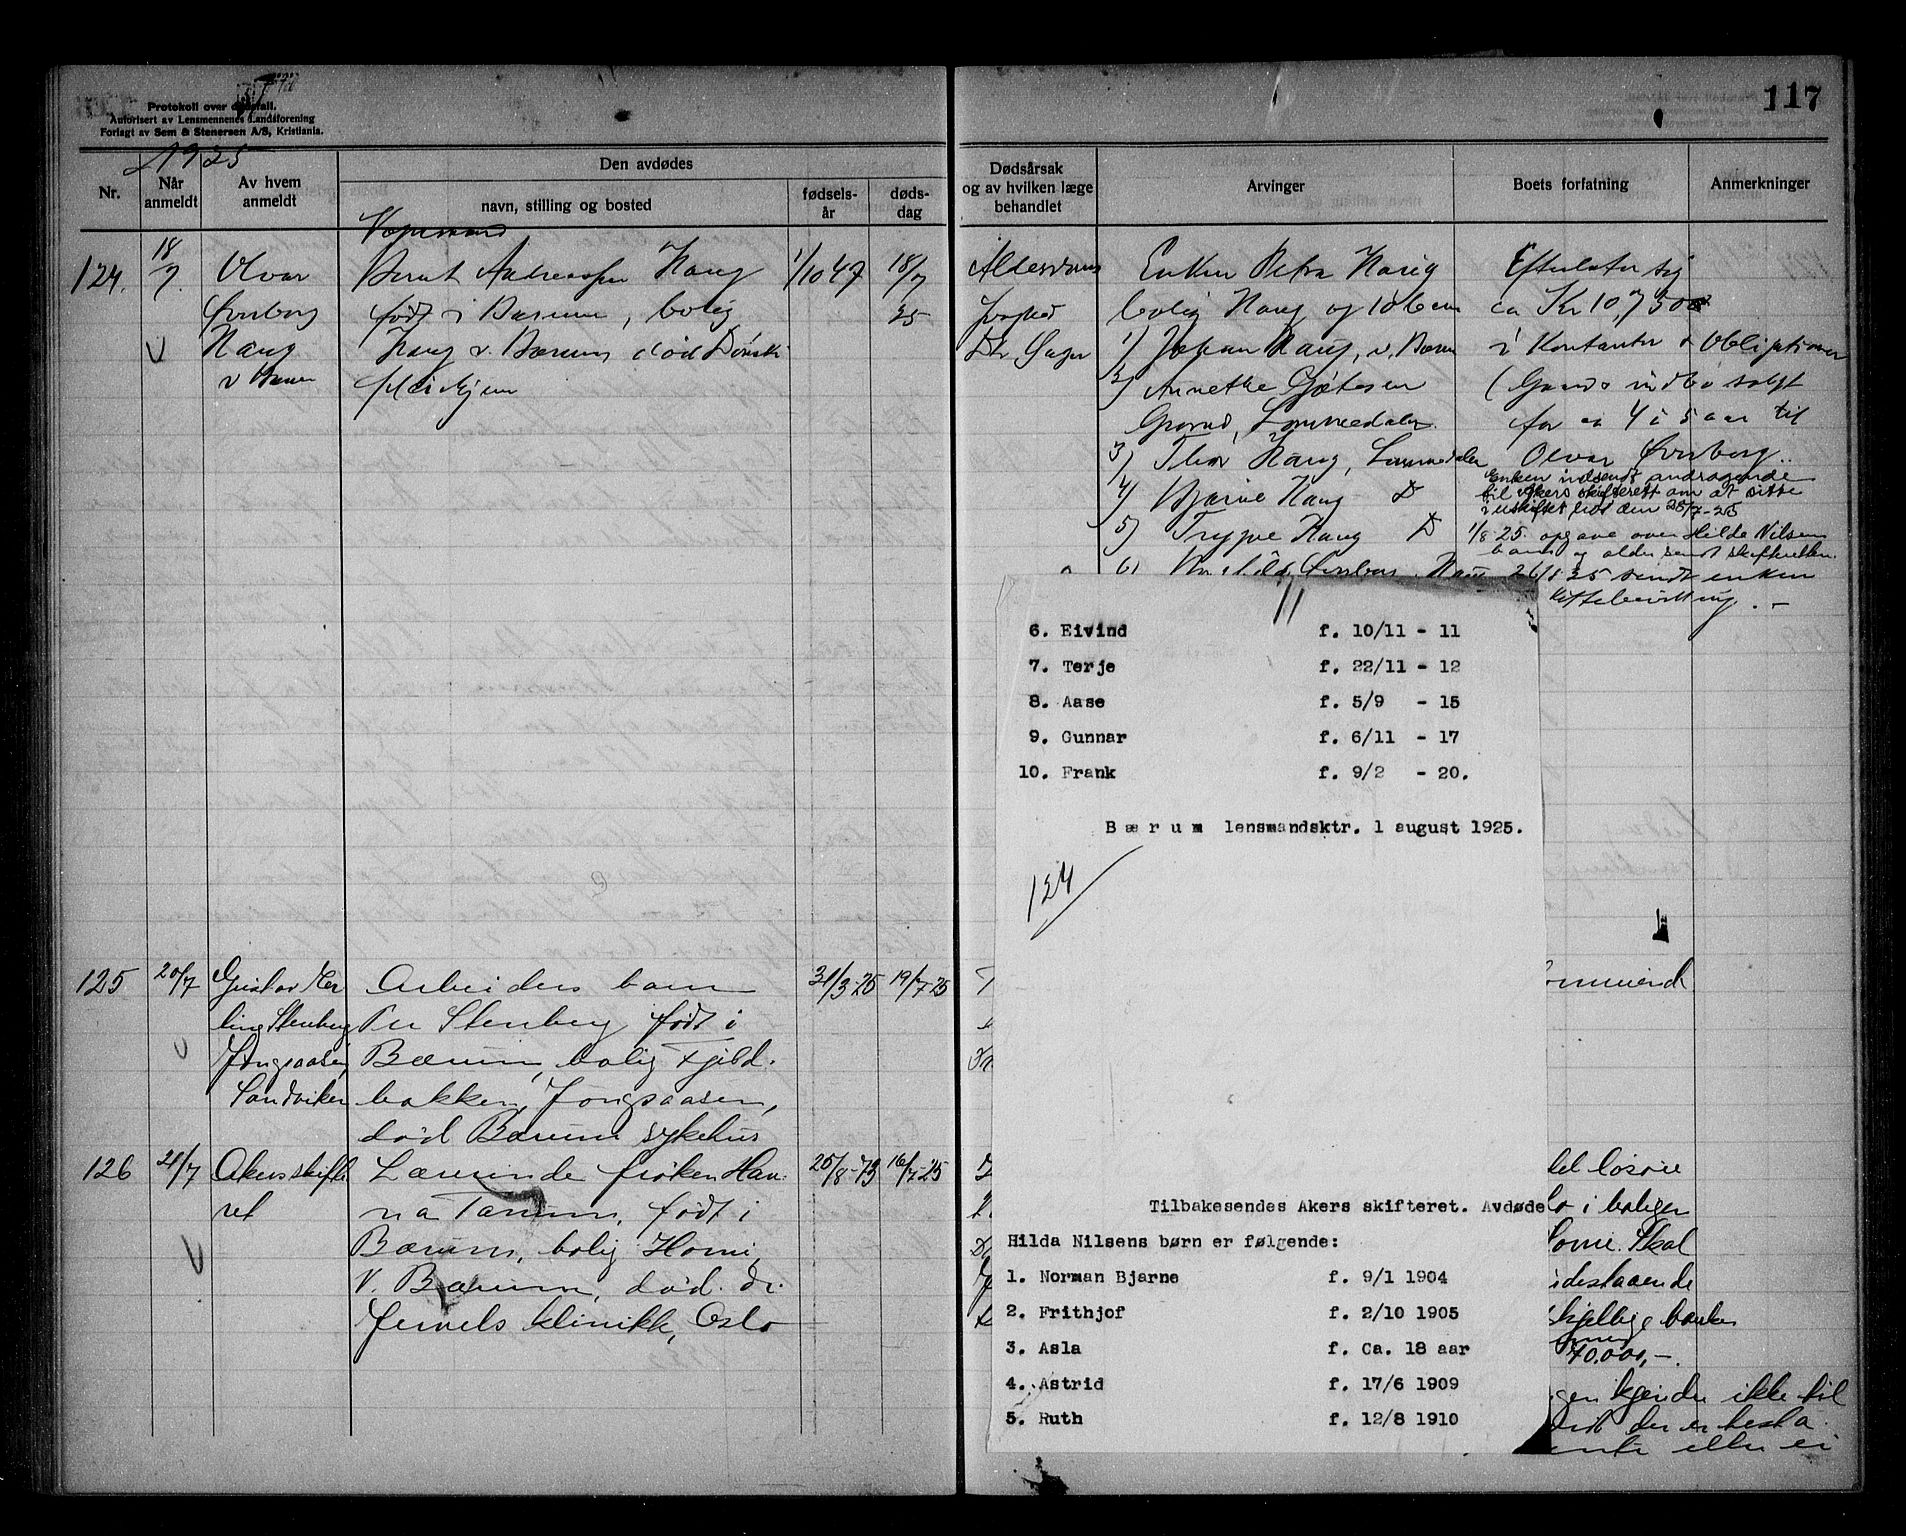 117
Protokoll over dødsfall.
Autorisert av Lensmennenes Landsforening
Forlagt av Sem & Stenersen A/S, Kristiania.
1925
Nr.
Når anmeldt
Av hvem anmeldt
Den avdødes
navn, stilling og bosted
fødsels-år
døds-dag
Dødsårsak og av hvilken læge behandlet
Arvinger
Boets forfatning
Anmerkninger
124.
18/7.
Olvar
Haug
v Bærum
Bernt Andreassen Haug
født i Bærum, bolig
Haug v. Bærum død Dønski
pleiehjem
1/10 47
18/7
25
Alderdoms
Dr.
Enken Petra Haug
bolig Haug og 10 barn
1) Johan Haug, v. Bærum
2) Annethe
Lommedalen
3) Thor Haug, Lommedalen
4) Bjarne Haug Do
5) Trygve Haug Do
6)
Efterlater sig
ca Kr 10,7300
i Kontanter & Obligationer
solgt
for ca 4 à 5 aar til
Olvar
Enken indsendt andragende
til Akers skifterett om at sitte
i uskiftet bo den 25/7-25
1/8 25. opgave over Hilda Nilsens
barn og alder sendt skifteretten.
26/8 25 sendt enken
6. Eivind f. 10/11 - 11
7. Terje f. 22/11 - 12
8. Aase f. 5/9 - 15
9. Gunnar f. 6/11 - 17
10. Frank f. 9/2 - 20.
Bærum lensmandsktr. 1 august 1925.
124
Tilbakesendes Akers skifteret. Avdøde
Hilda Nilsens børn er følgende:
1. Norman Bjarne f. 9/1 1904
2. Frithjof f. 2/10 1905
3. Asla f. Ca. 18 aar
4. Astrid f. 17/6 1909
5. Ruth f. 12/8 1910
125
20/7
Gustav Her
Stenberg
Jongsaasen
Sandviken
Arbeiders barn
Per Stenberg født i
Bærum, bolig Fjeld-
bakken, Jongsaasen,
død Bærum sykehus
31/3-25
19/7-25
126
21/7
Akers skifte
ret
Lærerinde frøken Han-
na Tanum, født i
Bærum, bolig Horni,
V. Bærum, død. Dr.
Jervels klinikk, Oslo
25/8-73
16/7-25
del løsøre
bo i boligen
Horni. Skal
skjellige banker
70.000,-.
kjender ikke til
der er testa-
eller ei